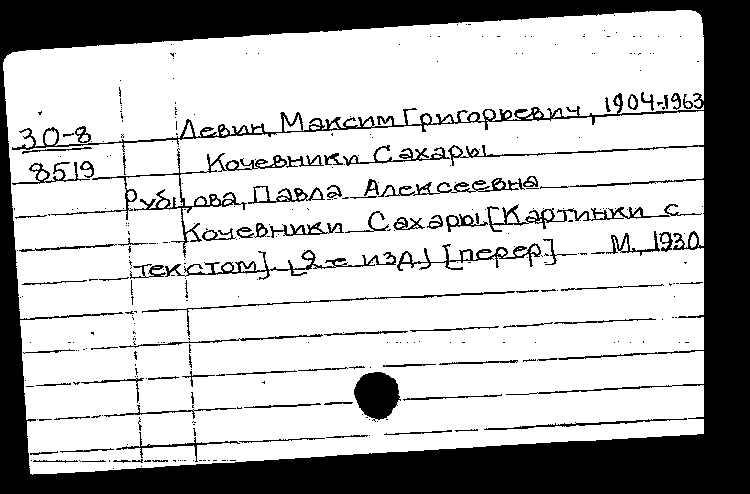 30-8 Левин, Максим Григорьевич, 1904-1963
8519 Кочевники Сахары
Рубцова, Павла Алексеевна
Кочевники Сахары. [Картинки с
текстом]. 2-е изд. [перер] М., 1930